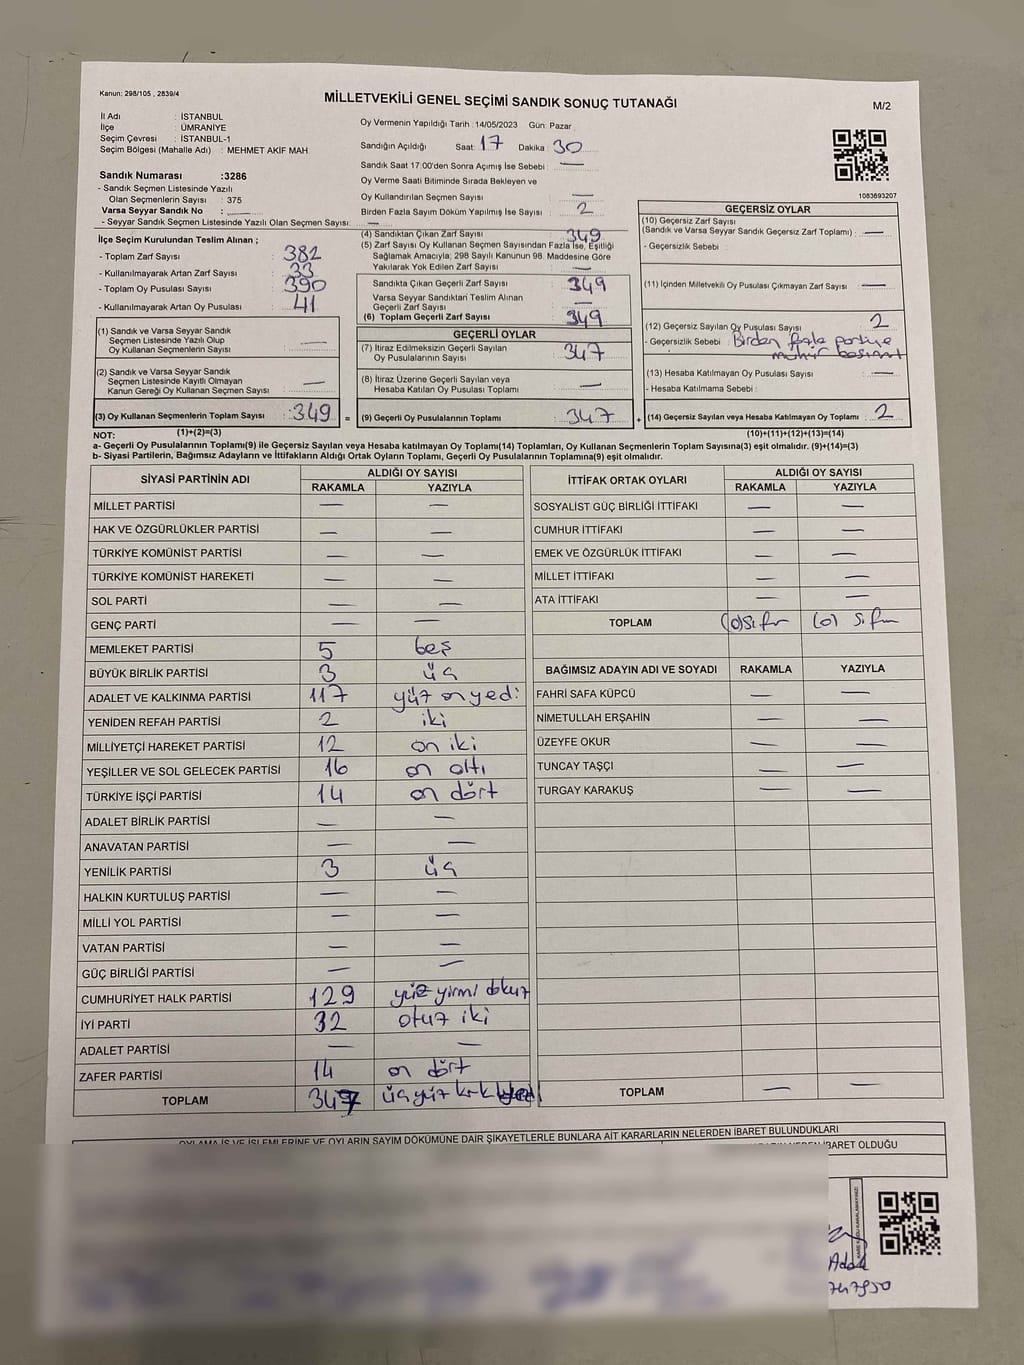 Kanun: 298/105 , 2839/4
MİLLETVEKİLİ GENEL SEÇİMİ SANDIK SONUÇ TUTANAĞI
M/2
İl Adı : İSTANBUL
İlçe : ÜMRANİYE
Seçim Çevresi : İSTANBUL-1
Seçim Bölgesi (Mahalle Adı) : MEHMET AKİF MAH
Sandık Numarası :3286
- Sandık Seçmen Listesinde Yazılı
Olan Seçmenlerin Sayısı : 375
Varsa Seyyar Sandık No :
- Seyyar Sandık Seçmen Listesinde Yazılı Olan Seçmen Sayısı: —
Oy Vermenin Yapıldığı Tarih : 14/05/2023 Gün: Pazar
Sandığın Açıldığı Saat: 17 Dakika : 30
Sandık Saat 17:00'den Sonra Açılmış İse Sebebi : —
Oy Verme Saati Bitiminde Sırada Bekleyen ve
Oy Kullandırılan Seçmen Sayısı : —
Birden Fazla Sayım Döküm Yapılmış İse Sayısı : 2
1083693207
İlçe Seçim Kurulundan Teslim Alınan ;
- Toplam Zarf Sayısı : 382
- Kullanılmayarak Artan Zarf Sayısı : 33
- Toplam Oy Pusulası Sayısı : 390
- Kullanılmayarak Artan Oy Pusulası : 41
(1) Sandık ve Varsa Seyyar Sandık
Seçmen Listesinde Yazılı Olup
Oy Kullanan Seçmenlerin Sayısı : —
(2) Sandık ve Varsa Seyyar Sandık
Seçmen Listesinde Kayıtlı Olmayan
Kanun Gereği Oy Kullanan Seçmen Sayısı : —
(3) Oy Kullanan Seçmenlerin Toplam Sayısı : 349
(1)+(2)=(3)
(4) Sandıktan Çıkan Zarf Sayısı : 349
(5) Zarf Sayısı Oy Kullanan Seçmen Sayısından Fazla İse, Eşitliği
Sağlamak Amacıyla; 298 Sayılı Kanunun 98. Maddesine Göre
Yakılarak Yok Edilen Zarf Sayısı : —
Sandıkta Çıkan Geçerli Zarf Sayısı : 349
Varsa Seyyar Sandıktan Teslim Alınan
Geçerli Zarf Sayısı : —
(6) Toplam Geçerli Zarf Sayısı : 349
GEÇERLİ OYLAR
(7) İtiraz Edilmeksizin Geçerli Sayılan
Oy Pusulalarının Sayısı : 347
(8) İtiraz Üzerine Geçerli Sayılan veya
Hesaba Katılan Oy Pusulası Toplamı : —
= (9) Geçerli Oy Pusulalarının Toplamı : 347 +
GEÇERSİZ OYLAR
(10) Geçersiz Zarf Sayısı
(Sandık ve Varsa Seyyar Sandık Geçersiz Zarf Toplamı) : —
- Geçersizlik Sebebi :
(11) İçinden Milletvekili Oy Pusulası Çıkmayan Zarf Sayısı : —
(12) Geçersiz Sayılan Oy Pusulası Sayısı : 2
- Geçersizlik Sebebi : Birden fazla partiye
mühür basımı
(13) Hesaba Katılmayan Oy Pusulası Sayısı : —
- Hesaba Katılmama Sebebi :
(14) Geçersiz Sayılan veya Hesaba Katılmayan Oy Toplamı : 2
(10)+(11)+(12)+(13)=(14)
NOT:
a- Geçerli Oy Pusulalarının Toplamı(9) ile Geçersiz Sayılan veya Hesaba katılmayan Oy Toplamı(14) Toplamları, Oy Kullanan Seçmenlerin Toplam Sayısına(3) eşit olmalıdır. (9)+(14)=(3)
b- Siyasi Partilerin, Bağımsız Adayların ve İttifakların Aldığı Ortak Oyların Toplamı, Geçerli Oy Pusulalarının Toplamına(9) eşit olmalıdır.
SİYASİ PARTİNİN ADI ALDIĞI OY SAYISI
RAKAMLA YAZIYLA
MİLLET PARTİSİ — —
HAK VE ÖZGÜRLÜKLER PARTİSİ — —
TÜRKİYE KOMÜNİST PARTİSİ — —
TÜRKİYE KOMÜNİST HAREKETİ — —
SOL PARTİ — —
GENÇ PARTİ — —
MEMLEKET PARTİSİ 5 beş
BÜYÜK BİRLİK PARTİSİ 3 üç
ADALET VE KALKINMA PARTİSİ 117 yüz on yedi
YENİDEN REFAH PARTİSİ 2 iki
MİLLİYETÇİ HAREKET PARTİSİ 12 on iki
YEŞİLLER VE SOL GELECEK PARTİSİ 16 on altı
TÜRKİYE İŞÇİ PARTİSİ 14 on dört
ADALET BİRLİK PARTİSİ — —
ANAVATAN PARTİSİ — —
YENİLİK PARTİSİ 3 üç
HALKIN KURTULUŞ PARTİSİ — —
MİLLİ YOL PARTİSİ — —
VATAN PARTİSİ — —
GÜÇ BİRLİĞİ PARTİSİ — —
CUMHURİYET HALK PARTİSİ 129 yüz yirmi dokuz
İYİ PARTİ 32 otuz iki
ADALET PARTİSİ — —
ZAFER PARTİSİ 14 on dört
TOPLAM 347 üçyüz kırk yedi
İTTİFAK ORTAK OYLARI ALDIĞI OY SAYISI
RAKAMLA YAZIYLA
SOSYALİST GÜÇ BİRLİĞİ İTTİFAKI — —
CUMHUR İTTİFAKI — —
EMEK VE ÖZGÜRLÜK İTTİFAKI — —
MİLLET İTTİFAKI — —
ATA İTTİFAKI — —
TOPLAM (0) Sıfır (0) Sıfır
BAĞIMSIZ ADAYIN ADI VE SOYADI RAKAMLA YAZIYLA
FAHRİ SAFA KÜPCÜ — —
NİMETULLAH ERŞAHİN — —
ÜZEYFE OKUR — —
TUNCAY TAŞÇI — —
TURGAY KARAKUŞ — —
TOPLAM — —
OYLAMA İŞ VE İŞLEMLERİNE VE OYLARIN SAYIM DÖKÜMÜNE DAİR ŞİKAYETLERLE BUNLARA AİT KARARLARIN NELERDEN İBARET BULUNDUKLARI
İBARET OLDUĞU